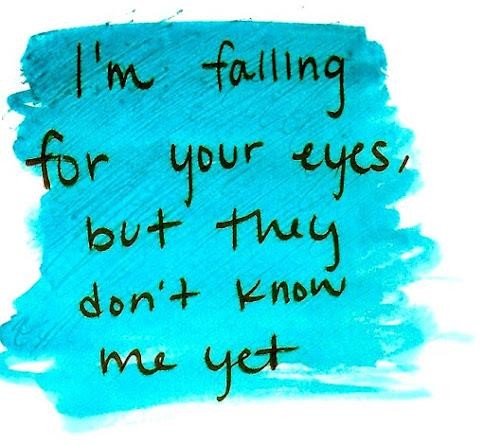 I'm falling
for your eyes,
but they
don't know
me yet